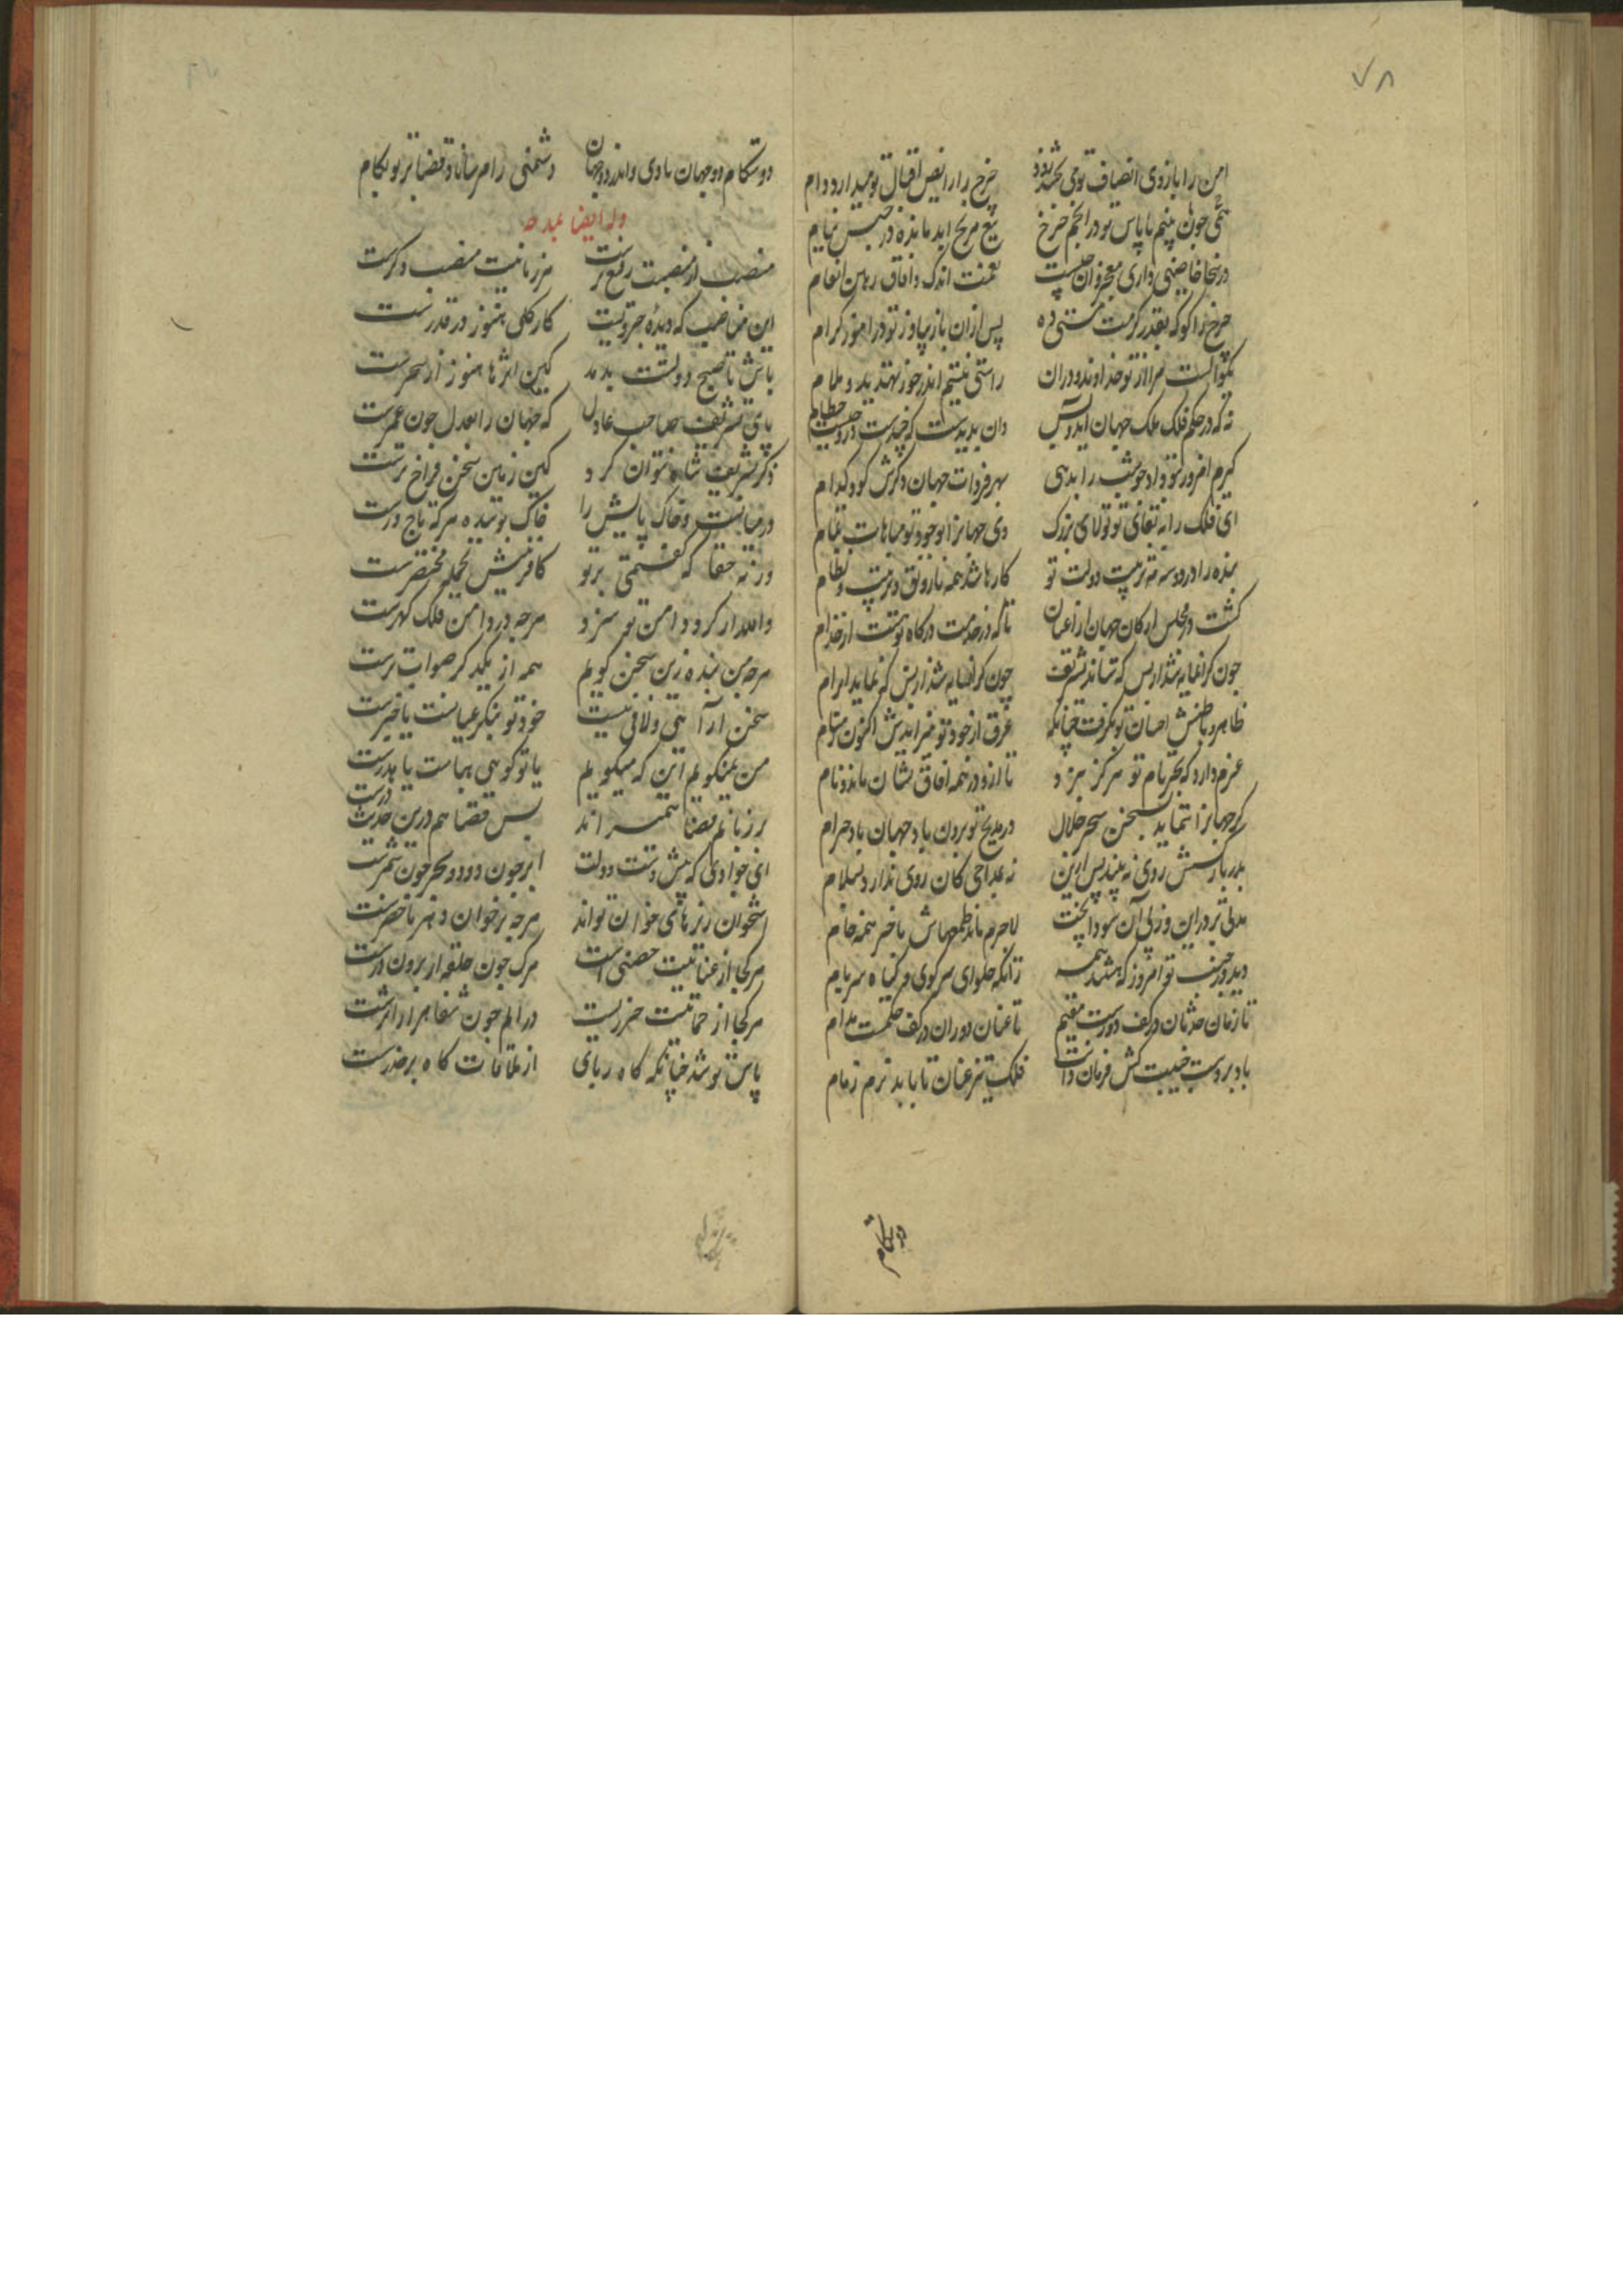 ۷۸
امن را بازوی انصاف تو می بخشد زور چرخ را رایض اقبال تو میدارد رام
تیغ مریخ ابد مانده در حبس نیام
نعمتت اندک و آفاق رهین انعام
چرخ را کو که بقدر کرمت هستی ده پس ازان باز بیاور تو در آموز کرام
راستی نیستم اندر خور تهدید و ملام
نه که در حکم فلک ملک جهان آمد و بس وان پدیدست که چندست و در و چیست حطام
گیرم امروز بتو داد چو شب را بدهی بهر فردات جهان دگرش کو و کدام
ای فلک را به بقای تو تولای بزرگ وی جهانرا بوجود تو مباهات تمام
بنده را در دو سه مه تربیت دولت تو کارها شد همه با رونق و ترتیب و نظام
گشت در مجلس ارکان جهان از اعیان تا که در خدمت درگاه تو هست از خدام
چون گرانمایه شد از بس که نماید ابرام
ظاهر و باطنش احسان تو بگرفت چنانک عرق از خود تو میزایدش اکنون ز مسام
عزم دارد که بجز نام تو هرگز نبرد تا ازو در همه آفاق نشان ماند و نام
گر جهانرا ننماید بسخن سحر حلال در مدیح تو برون باد جهان باد حرام
نه بمداحی کان روی ندارد بسلام
مدتی بر در این و ز پی آن سودا پخت لاجرم ماند طمعهاش باخر همه خام
دید در جنب تو امروز که هستند همه زانکه حلوای سر کوی و گیاه سر بام
تا زمان حدثان در کف دورست مقیم تا عنان دوران در کف حکمست مدام
باد بر دست جنیبت کش فرمان دانت فلک تیز عنان تا بابد نرم زمام
دوستکام
دوستکام دو جهان بادی و اندر دو جهان دشمنی را مرساناد قضا بر تو بکام
وله ایضا یمدحه
منصب از منصبت رفیع ترست هر زمانیت منصب دگرست
این مناصب که دیده جزویست کار کلی هنوز در قدرست
باش تا صبح دولتت بدمد کین اثرها هنوز از سحرست
پای تشریف صاحب عادل که جهان را بعدل چون عمرست
ذکر تشریف شاه نتوان کرد کین زمین سخن فراخ ترست
در میانست و خاک پایش را خاک بوسیده هر که تاجورست
ورنه حقا که گفتمی بر تو کافرینش بجمله مختصرست
والله ار گرد دامن تو سزد هرچه در دامن فلک گهرست
هرچه من بنده زین سخن گویم همه از یکدگر صواب ترست
سخن ار آیتی و لافی نیست خود تو بنگر عیانست یا خبرست
من نمیگویم این که میگویم یا تو گویی بهاست یا بدرست
بر زبانم قضا همیراند پس قضا هم درین حدیث درست
ای جوادی که پیش دست و دلت ابر چون دود و بحر چون شمرست
استخوان ریزهای خوان تواند هرچه بر خوان دهر ماحضرست
هر کجا از عنایتت حصنی است مرگ چون حلقه از برون درست
هر کجا از حمایتت حرزیست در الم چون شفا هزار اثرست
پاس تو شد چنانکه کاه ربای از ملاقات کاه برحذرست